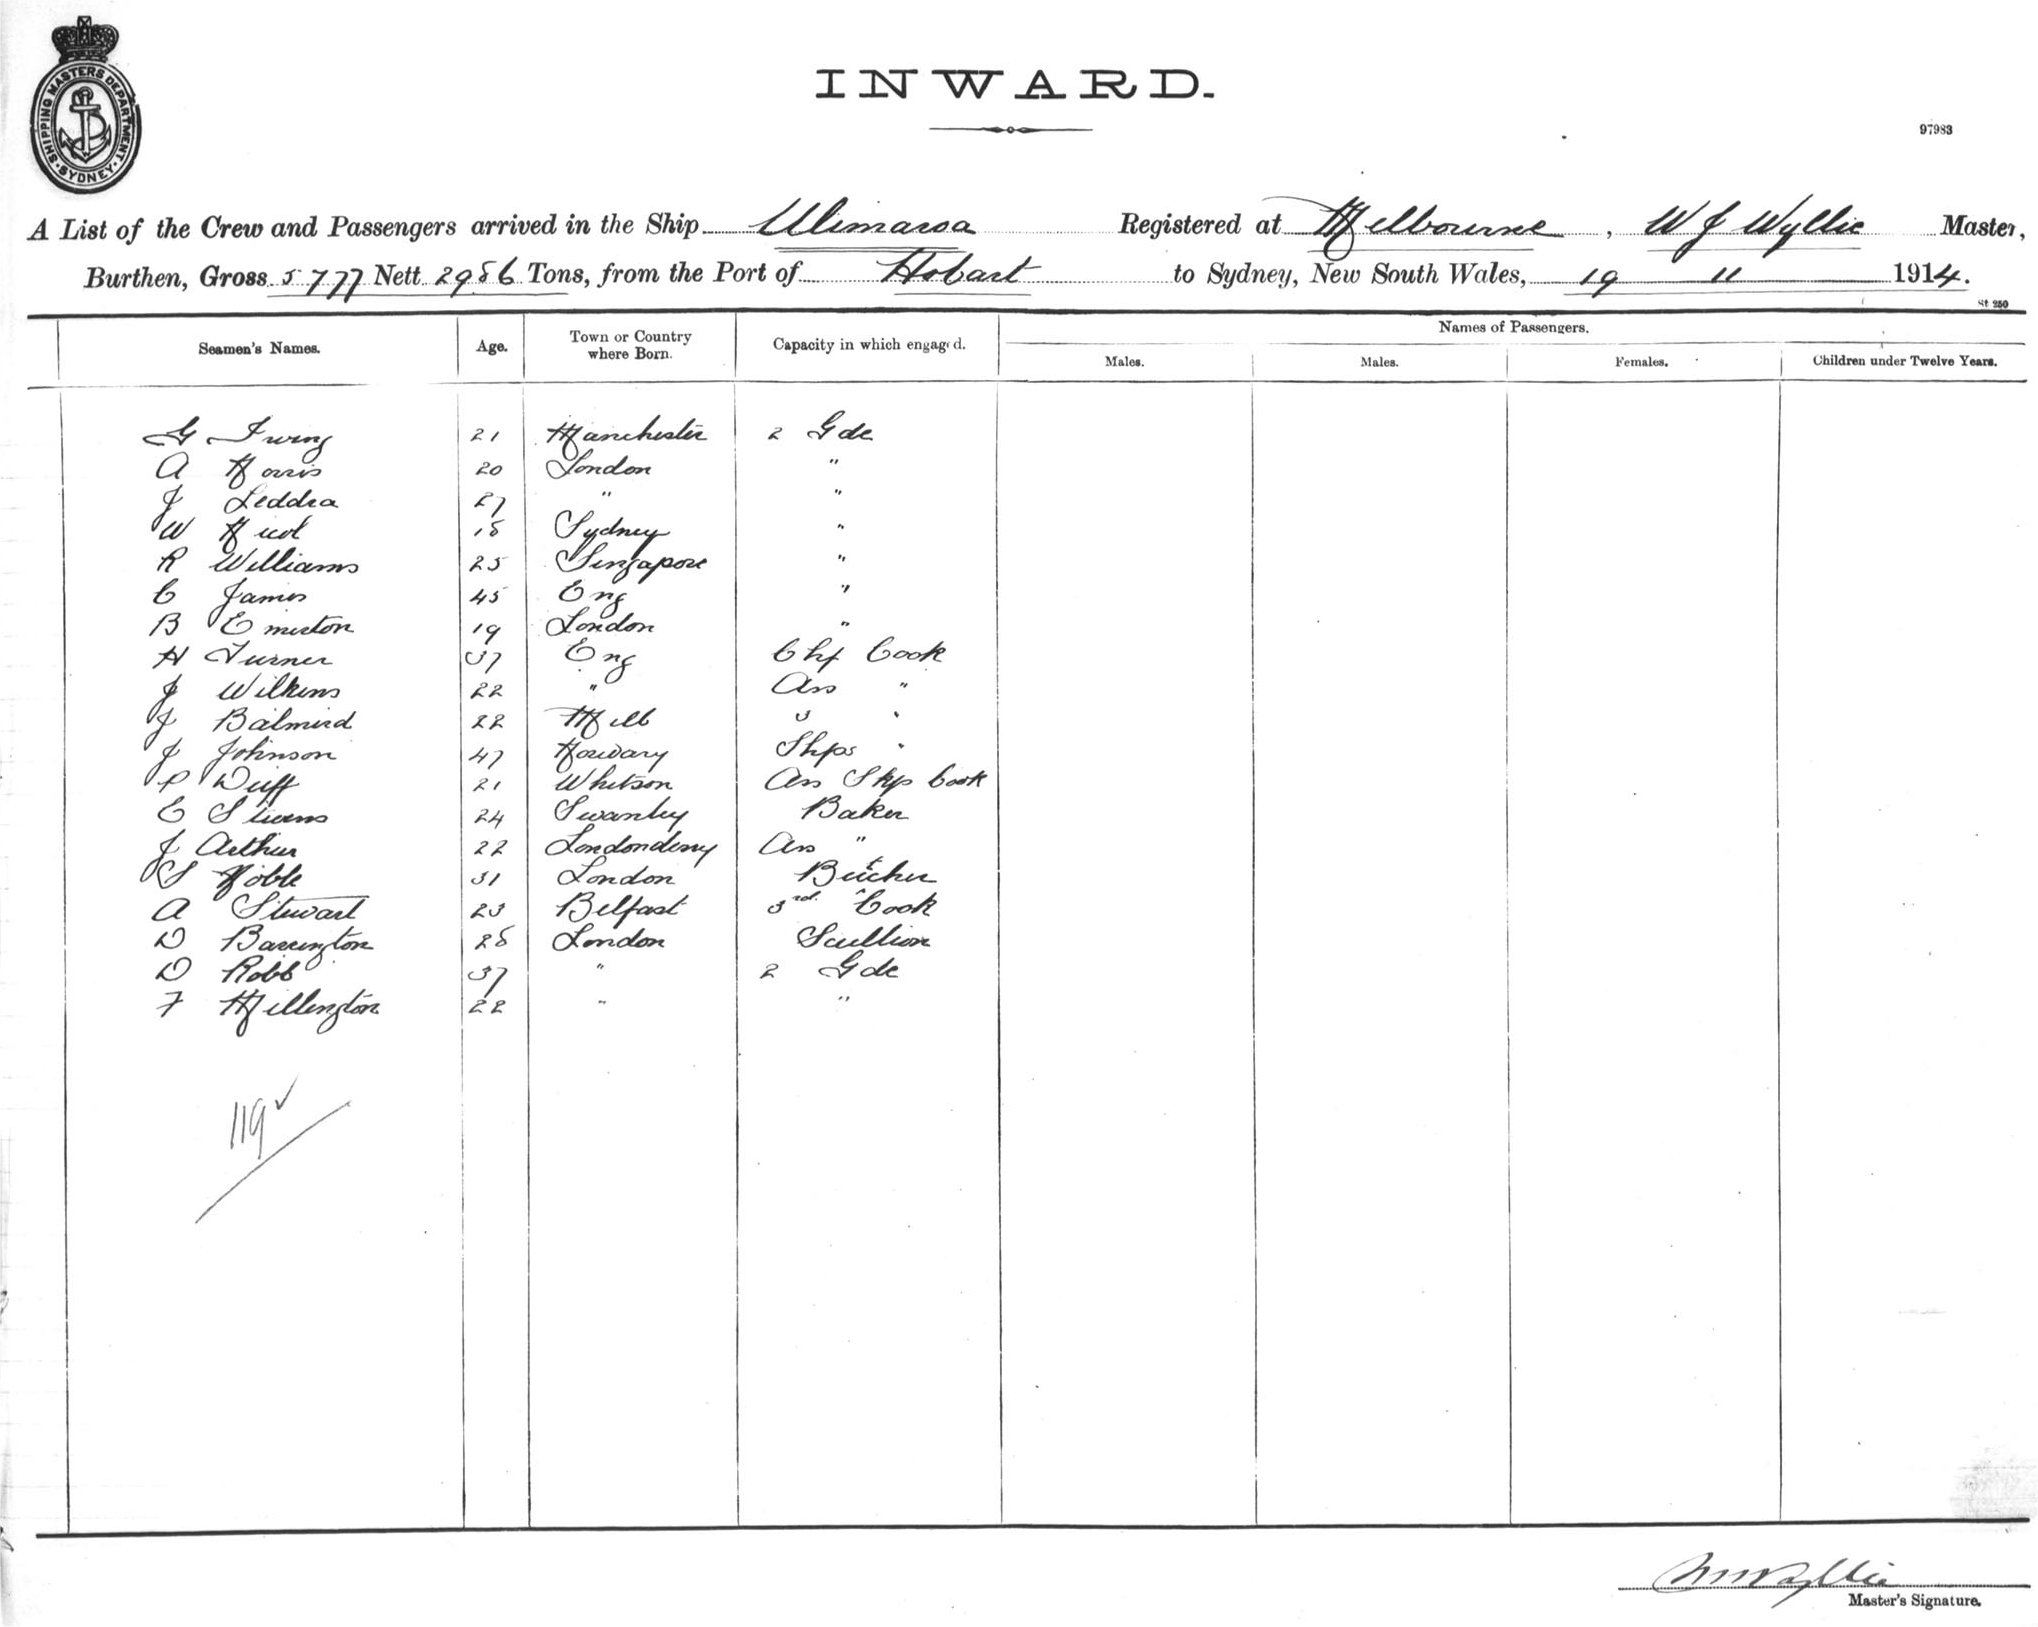 SHIPPING MASTERS DEPARTMENT
SYDNEY
INWARD.
97983
A List of the Crew and Passengers arrived in the Ship Ulimaroa Registered at Melbourne, W J Wyllie Master,
Burthen, Gross 5777 Nett 2986 Tons, from the Port of Hobart to Sydney, New South Wales, 19 11 1914.
St 250
Seamen's Names. Age. Town or Country where Born. Capacity in which engaged. Names of Passengers.
Males. Males. Females. Children under Twelve Years.
G Irving 21 Manchester 2 Gde
A Norris 20 London "
J Leddra 27 " "
W Nicol 18 Sydney "
R Williams 25 Singapore "
C James 45 Eng "
B 19 London "
H Turner 37 Eng Chf Cook
J Wilkins 22 " Ass "
J 22 Melb 3 "
J Johnson 47 Norway Shps "
P Duff 21 Whitson Ass Shp Cook
E Stevens 24 Swanley Baker
J Arthur 22 Londonderry Ass "
S Noble 31 London Butcher
A Stewart 23 Belfast 3rd Cook
D Barrington 28 London Scullion
D Robb 37 " 2 Gde
F Millington 22 " "
119
Wyllie
Master's Signature.